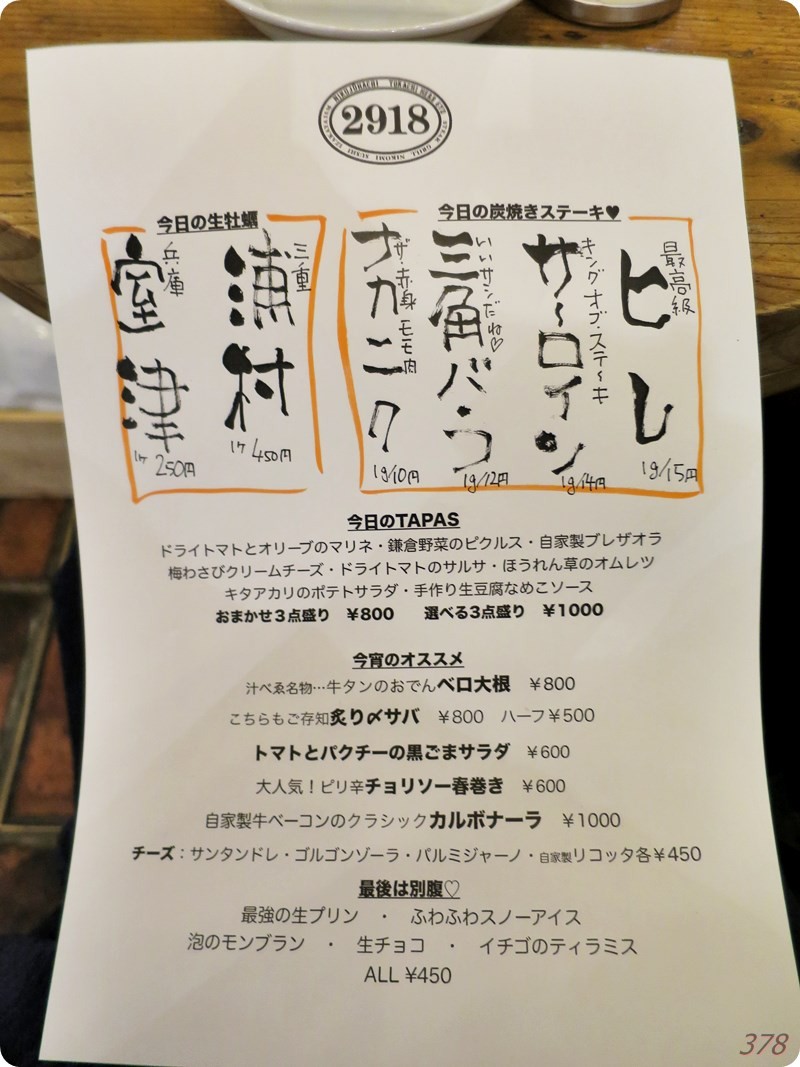 2918
今日の生牡蠣
三重
浦村
1ケ 450円
兵庫
室津
1ケ 250円
今日の炭焼きステーキ♥
最高級
ヒレ
1g/15円
キングオブ・ステーキ
サーロイン
1g/14円
いいサシだね♡
三角バラ
1g/12円
ザ・赤身 モモ肉
ナカニク
1g/10円
今日のTAPAS
ドライトマトとオリーブのマリネ・鎌倉野菜のピクルス・自家製ブレザオラ
梅わさびクリームチーズ・ドライトマトのサルサ・ほうれん草のオムレツ
キタアカリのポテトサラダ・手作り生豆腐なめこソース
おまかせ３点盛り ¥800 選べる3点盛り ¥1000
今宵のオススメ
汁べゑ名物…牛タンのおでんベロ大根 ¥800
こちらもご存知炙り〆サバ ¥800 ハーフ¥500
トマトとパクチーの黒ごまサラダ ¥600
大人気！ピリ辛チョリソー春巻き ¥600
自家製牛ベーコンのクラシックカルボナーラ ¥1000
チーズ：サンタンドレ・ゴルゴンゾーラ・パルミジャーノ・自家製リコッタ各¥450
最後は別腹♡
最強の生プリン ・ ふわふわスノーアイス
泡のモンブラン ・ 生チョコ ・ イチゴのティラミス
ALL ¥450
378